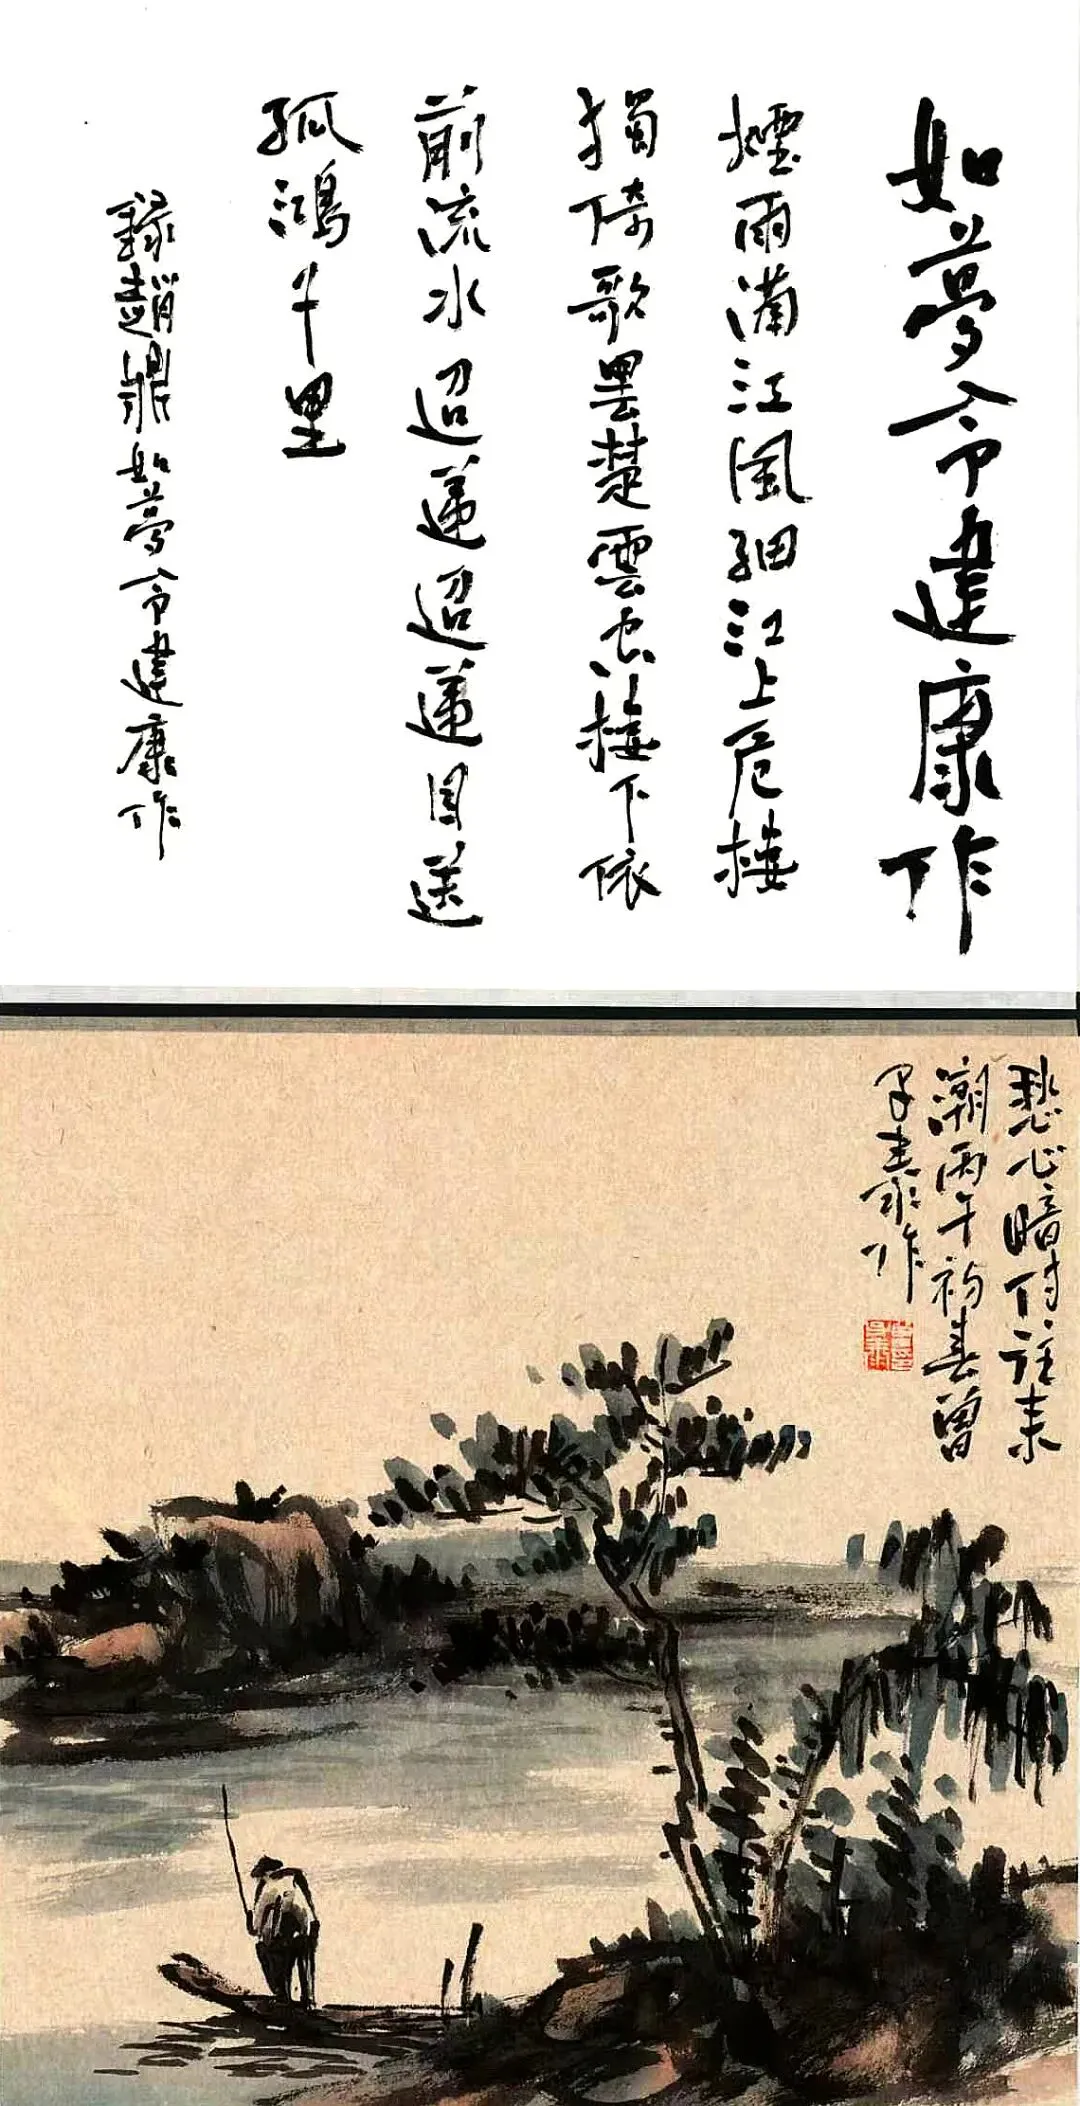 如夢令建康作
煙雨滿江風細江上危樓
獨倚歌罷楚雲空樓下依
前流水迢遞迢遞目送
孤鴻千里
錄趙鼎如夢令建康作
愁心暗付往來
潮丙午初春曾
作